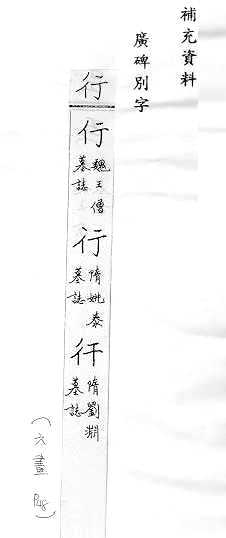 補充資料
廣碑別字
行
行
魏王僧
墓誌
行
隋姚泰
墓誌
行
隋劉淵
墓誌
(六畫 P48)